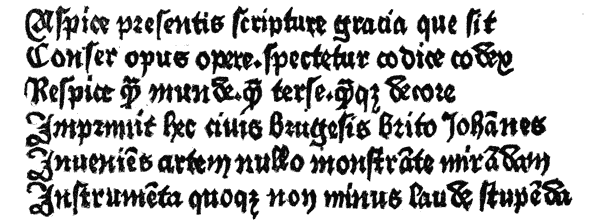 Aspice presentis scripture gracia que sit
Confer opus opere.spectetur codice codex
Respice q̃ munde.q̃ terse.q̃qꝫ decore
Imprimit hec ciuis brugẽsis brito Johãnes
Inueniẽs artem nullo monstrãte mirãdam
Instrumẽta quoqꝫ non minus laude stupẽda